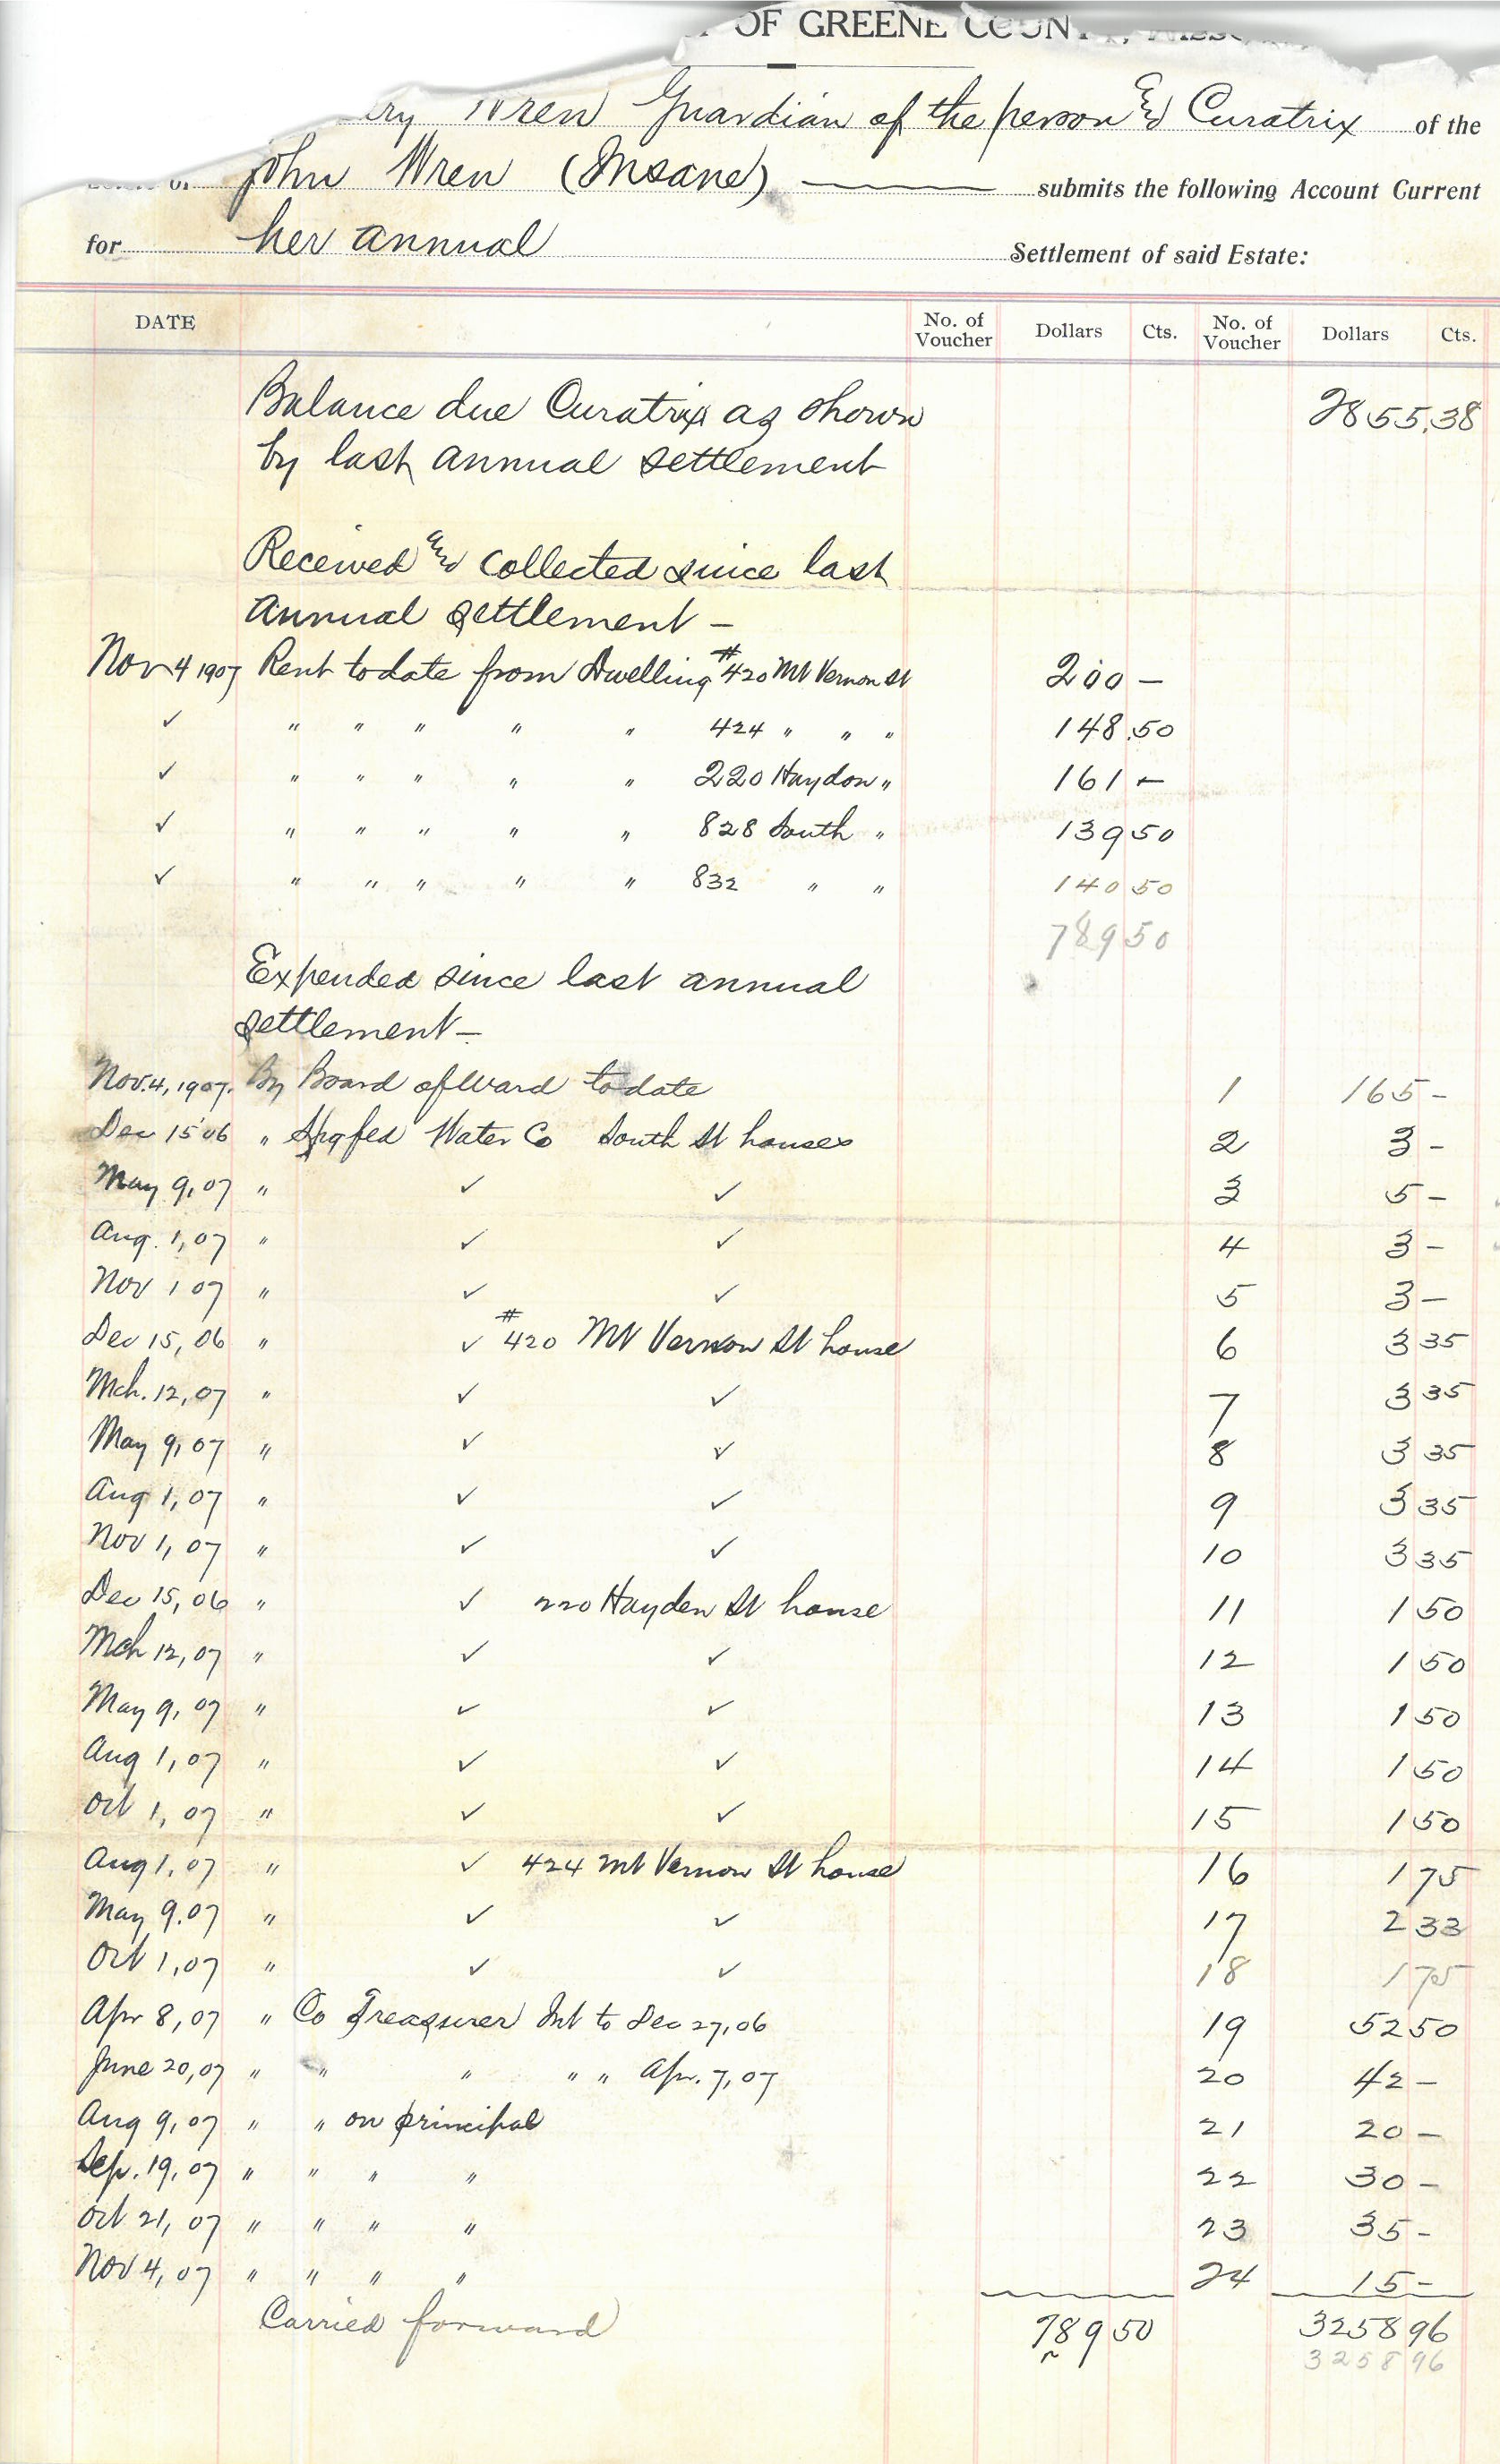 OF GREENE COUNTY,
Wren Guardian of the person and Curatrix of the
John Wren (Insane) submits the following Account Current
for her annual Settlement of said Estate:
DATE No. of Voucher Dollars Cts. No. of Voucher Dollars Cts.
Balance due Curatrix as shown 2855.38
by last annual settlement
Received and collected since last
annual settlement —
Nov 4 1907 Rent to date from Dwelling #420 Mt Vernon St 200 —
✓ " " " " " 424 " " " 148.50
✓ " " " " " 220 Haydon " 161 —
✓ " " " " " 828 South " 139 50
✓ " " " " " 832 " " 140 50
789 50
Expended since last annual
settlement —
Nov. 4, 1907. By Board of Ward to date 1 165 —
Dec 15 06 " Spgfed Water Co South St houses 2 3 —
May 9, 07 " ✓ ✓ 3 5 —
Aug. 1, 07 " ✓ ✓ 4 3 —
Nov 1 07 " ✓ ✓ 5 3 —
Dec 15, 06 " ✓ #420 Mt Vernon St house 6 3 35
Mch. 12, 07 " ✓ ✓ 7 3 35
May 9, 07 " ✓ ✓ 8 3 35
Aug 1, 07 " ✓ ✓ 9 3 35
Nov 1, 07 " ✓ ✓ 10 3 35
Dec 15, 06 " ✓ 220 Hayden St house 11 1 50
Mch 12, 07 " ✓ ✓ 12 1 50
May 9, 07 " ✓ ✓ 13 1 50
Aug 1, 07 " ✓ ✓ 14 1 50
Oct 1, 07 " ✓ ✓ 15 1 50
Aug 1, 07 " ✓ 424 Mt Vernon St house 16 1 75
May 9. 07 " ✓ ✓ 17 2 33
Oct 1, 07 " ✓ ✓ 18 1 75
Apr 8, 07 " Co Treasurer Int to Dec 27, 06 19 52 50
June 20, 07 " " " " " Apr. 7, 07 20 42 —
Aug 9, 07 " " on principal 21 20 —
Sep. 19, 07 " " " " 22 30 —
Oct 21, 07 " " " " 23 35 —
Nov 4, 07 " " " " 24 15 —
Carried forward 789 50 3258 96
3258 96